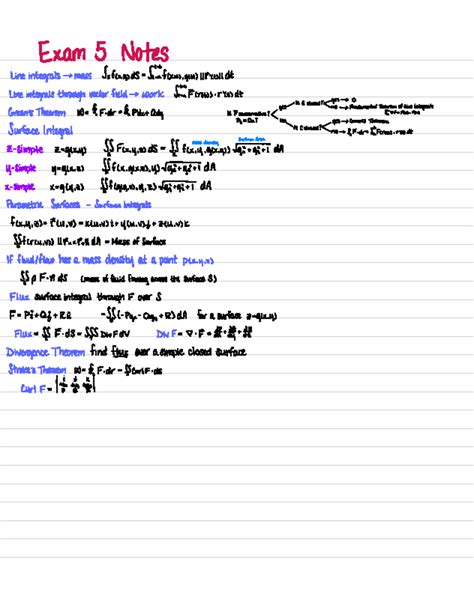 Exam 5 Notes
Line integrals → mass ∫_c f(x,y) ds = ∫ f(x(t), y(t)) ||r'(t)|| dt
Line integrals through vector field → work ∫ F(r(t)) · r'(t) dt
Green's Theorem W = ∮ F·dr = ∮ Pdx + Qdy
Is F conservative?
Is C closed?
yes → 0
no → Fundamental Theorem of line integrals
Is C closed?
yes → Green's Theorem
Surface Integral
z-simple z=g(x,y) ∬ F(x,y,z) dS = ∬ f(x,y,g(x,y)) √(g_x²+g_y²+1) dA
mass density
Surface Area
y-simple y=g(x,z) ∬ f(x,g(x,z),z) √(g_x²+g_z²+1) dA
x-simple x=g(y,z) ∬ f(g(y,z),y,z) √(g_y²+g_z²+1) dA
Parametric Surfaces – Surface Integrals
f(x,y,z) = r(u,v) = x(u,v)i + y(u,v)j + z(u,v)k
∬ f(r(u,v)) ||r_u × r_v|| dA = Mass of Surface
If fluid/flow has a mass density at a point ρ(x,y,z)
∬ ρ F·n dS (mass of fluid flowing across the surface S)
Flux surface integral through F over S
F = Pi + Qj + Rk = ∬ (-Pg_x - Qg_y + R) dA for a surface z=g(x,y)
Flux = ∬ F·dS = ∭ Div F dV Div F = ∇·F
Divergence Theorem find flux over a simple closed surface
Stoke's Theorem W = ∮ F·dr = ∬ Curl F·ds
Curl F =